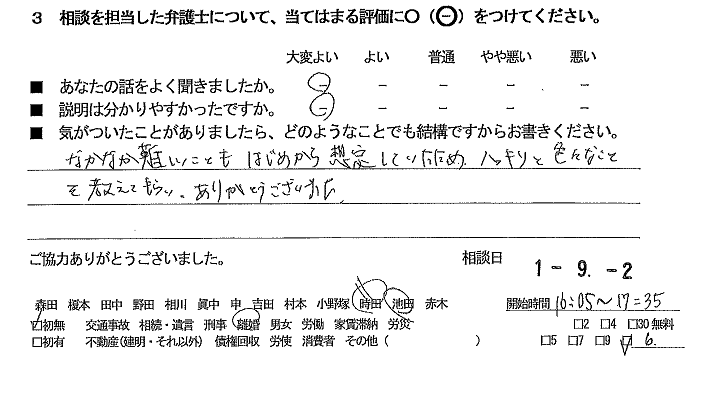 3 相談を担当した弁護士について、当てはまる評価に○（⊖）をつけてください。
大変よい よい 普通 やや悪い 悪い
■ あなたの話をよく聞きましたか。 － － － － －
■ 説明は分かりやすかったですか。 － － － － －
■ 気がついたことがありましたら、どのようなことでも結構ですからお書きください。
なかなか難しいことも はじめから想定していたため、ハッキリと色々なこと
を教えてもらい、ありがとうございました。
ご協力ありがとうございました。 相談日 1-9.-2
森田 榎本 田中 野田 相川 眞中 申 吉田 村本 小野塚 時田 池田 赤木 開始時間 16:05〜17:35
□初無 交通事故 相続・遺言 刑事 離婚 男女 労働 家賃滞納 労災 □2 □4 □30無料
□初有 不動産(建明・それ以外) 債権回収 労使 消費者 その他( ) □5 □7 □9 □ 6.